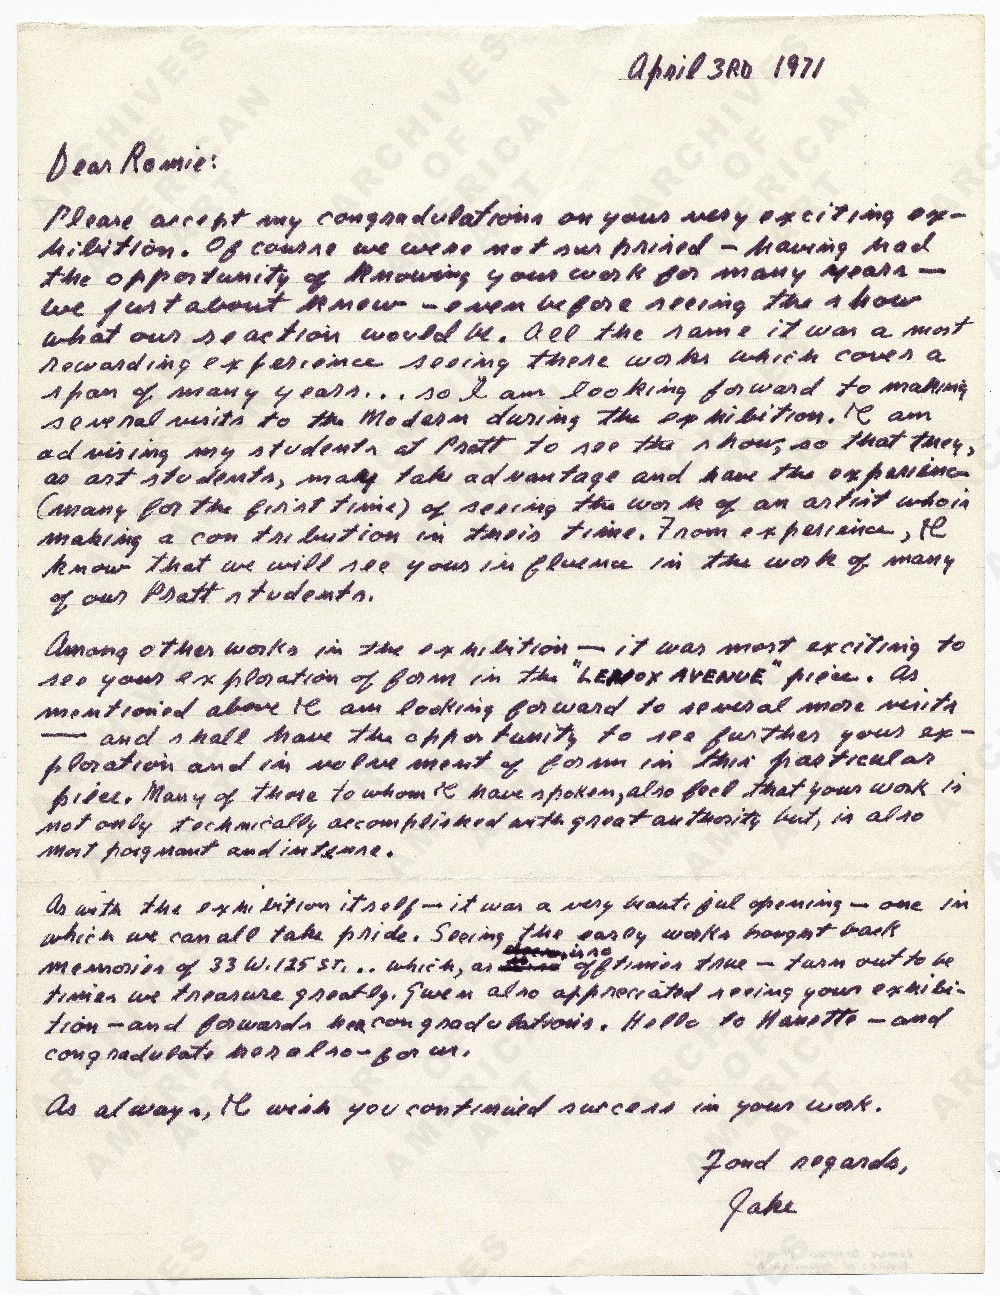 April 3RD 1971
Dear Romie:
Please accept my congradulations on your very exciting ex-
hibition. Of course we were not surprised – having had
the opportunity of knowing your work for many years –
we just about knew – even before seeing the show
what our reaction would be. All the same it was a most
rewarding experience seeing these works which cover a
span of many years... so I am looking forward to making
several visits to the Modern during the exhibition. I am
advising my students at Pratt to see the show, so that they,
as art students, may take advantage and have the experience
(many for the first time) of seeing the work of an artist who is
making a contribution in their time. From experience, I
know that we will see your influence in the work of many
of our Pratt students.
Among other works in the exhibition – it was most exciting to
see your exploration of form in the "LENOX AVENUE" piece. As
mentioned above I am looking forward to several more visits
— and shall have the opportunity to see further your ex-
ploration and involvement of form in this particular
piece. Many of those to whom I have spoken, also feel that your work is
not only technically accomplished with great authority but, is also
most poignant and intense.
As with the exhibition itself – it was a very beautiful opening – one in
which we can all take pride. Seeing the early works bought back
memories of 33 W. 125 ST... which, as oftimes true – turn out to be
times we treasure greatly. Gwen also appreciated seeing your exhibi-
tion – and forwards her congradulations. Hello to Nanette – and
congradulate her also – for us.
As always, I wish you continued success in your work.
Fond regards,
Jake
ARCHIVES
OF
AMERICAN
ART